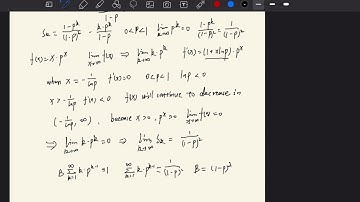 1-p
Sk = (1-p^k)/(1-p)^2 - k·p^k/(1-p) 0<p<1 lim k→∞ p^k=0 (1-p^k)/(1-p)^2 = 1/(1-p)^2
f(x)=x·p^x lim x→∞ f(x) ⇒ lim k→∞ k·p^k f'(x)=(1+xlnp)·p^x
when x=-1/lnp f'(x)=0 0<p<1 lnp<0
x>-1/lnp f'(x)<0 f(x) will continue to decrease in
(-1/lnp, ∞), because x>0, p^x>0 lim x→∞ f(x)=0
⇒ lim k→∞ k·p^k=0 ⇒ lim k→∞ Sk = 1/(1-p)^2
B ∑ k=1 ∞ k·p^k-1=1 ∑ k=1 ∞ k·p^k-1=1/(1-p)^2 B=(1-p)^2